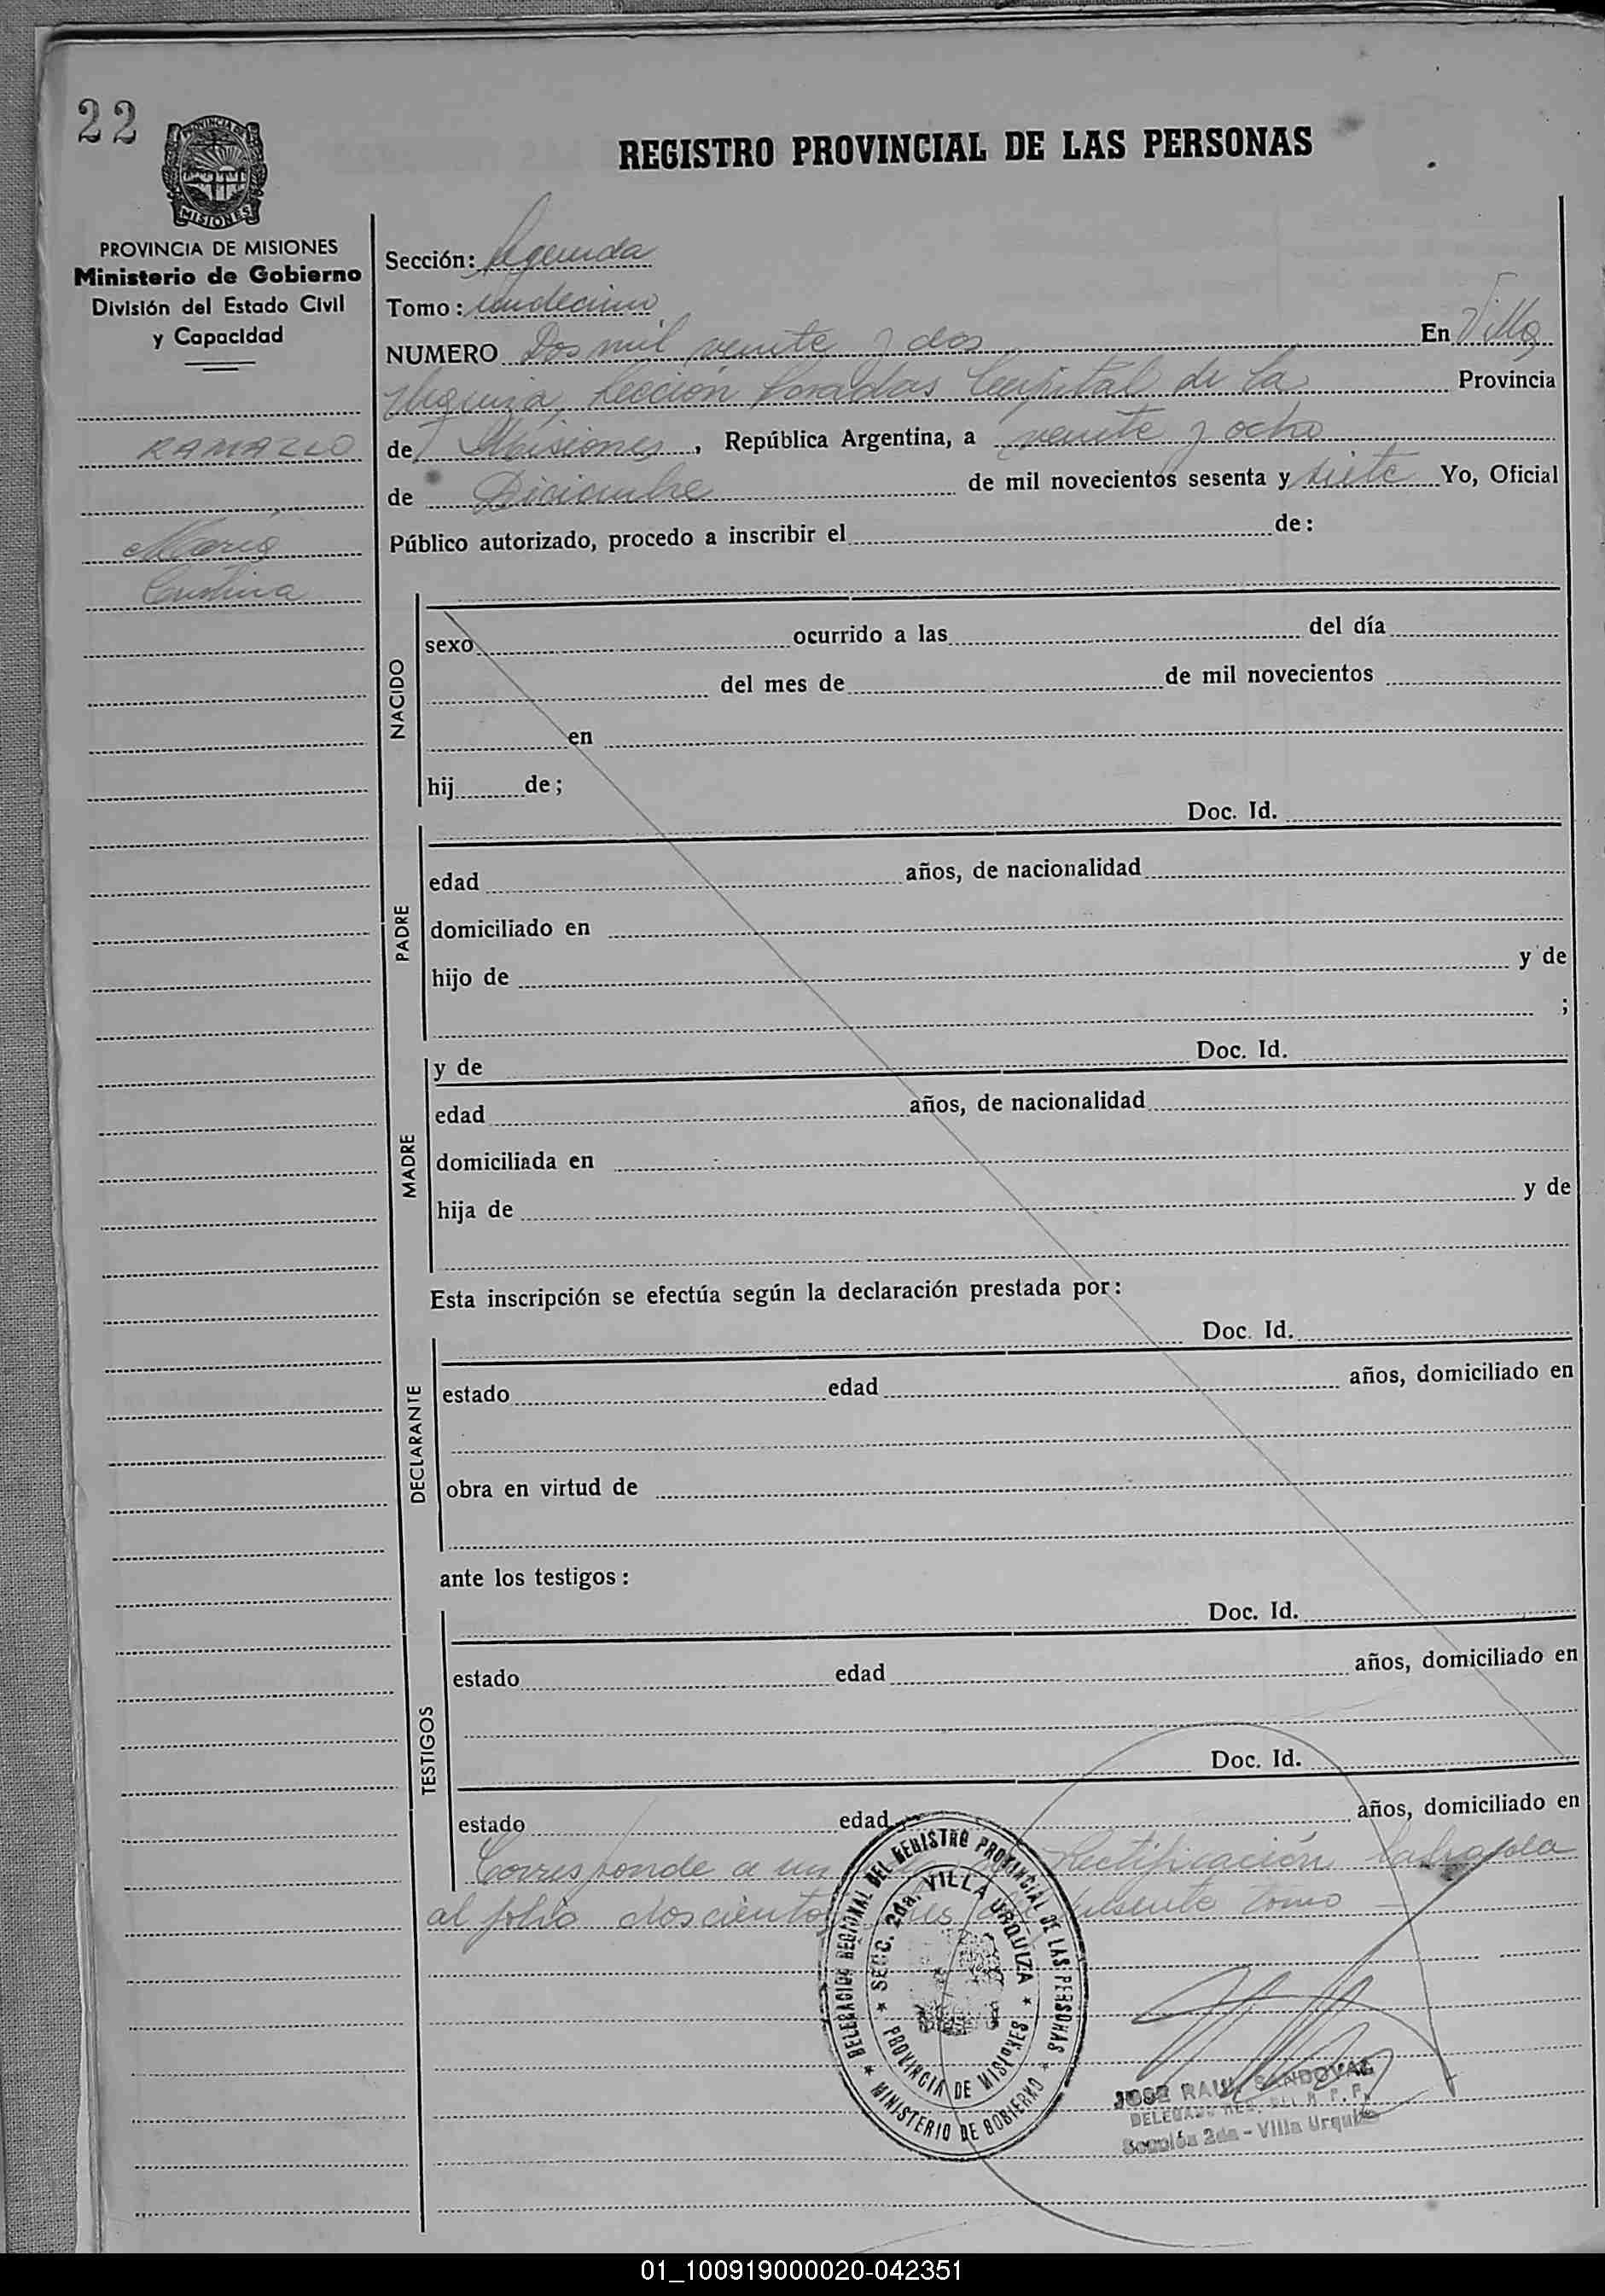 22
PROVINCIA DE
MISIONES
REGISTRO PROVINCIAL DE LAS PERSONAS
PROVINCIA DE MISIONES
Ministerio de Gobierno
División del Estado Civil
y Capacidad
RAMAZLO
Maria
Cristina
Sección: Segunda
Tomo: undecimo
NUMERO Dos mil veinte y dos En Villa
Urquiza, Sección Posadas Capital de la Provincia
de Misiones, República Argentina, a veinte y ocho
de Diciembre de mil novecientos sesenta y siete Yo, Oficial
Público autorizado, procedo a inscribir el de:
NACIDO
sexo ocurrido a las del día
del mes de de mil novecientos
en
hij de;
PADRE
Doc. Id.
edad años, de nacionalidad
domiciliado en
hijo de y de
;
MADRE
y de Doc. Id.
edad años, de nacionalidad
domiciliada en
hija de y de
Esta inscripción se efectúa según la declaración prestada por:
DECLARANTE
Doc. Id.
estado edad años, domiciliado en
obra en virtud de
ante los testigos:
TESTIGOS
Doc. Id.
estado edad años, domiciliado en
Doc. Id.
estado edad años, domiciliado en
Corresponde a un Rectificación labrada
al folio doscientos del presente tomo
DELEGACION REGIONAL DEL REGISTRO PROVINCIAL DE LAS PERSONAS
SECC. 2da. VILLA URQUIZA
PROVINCIA DE MISIONES
MINISTERIO DE GOBIERNO
JOSE RAUL SANDOVAL
DELEGADO REG. DEL R. P. P.
Sección 2da - Villa Urquiza
01_100919000020-042351